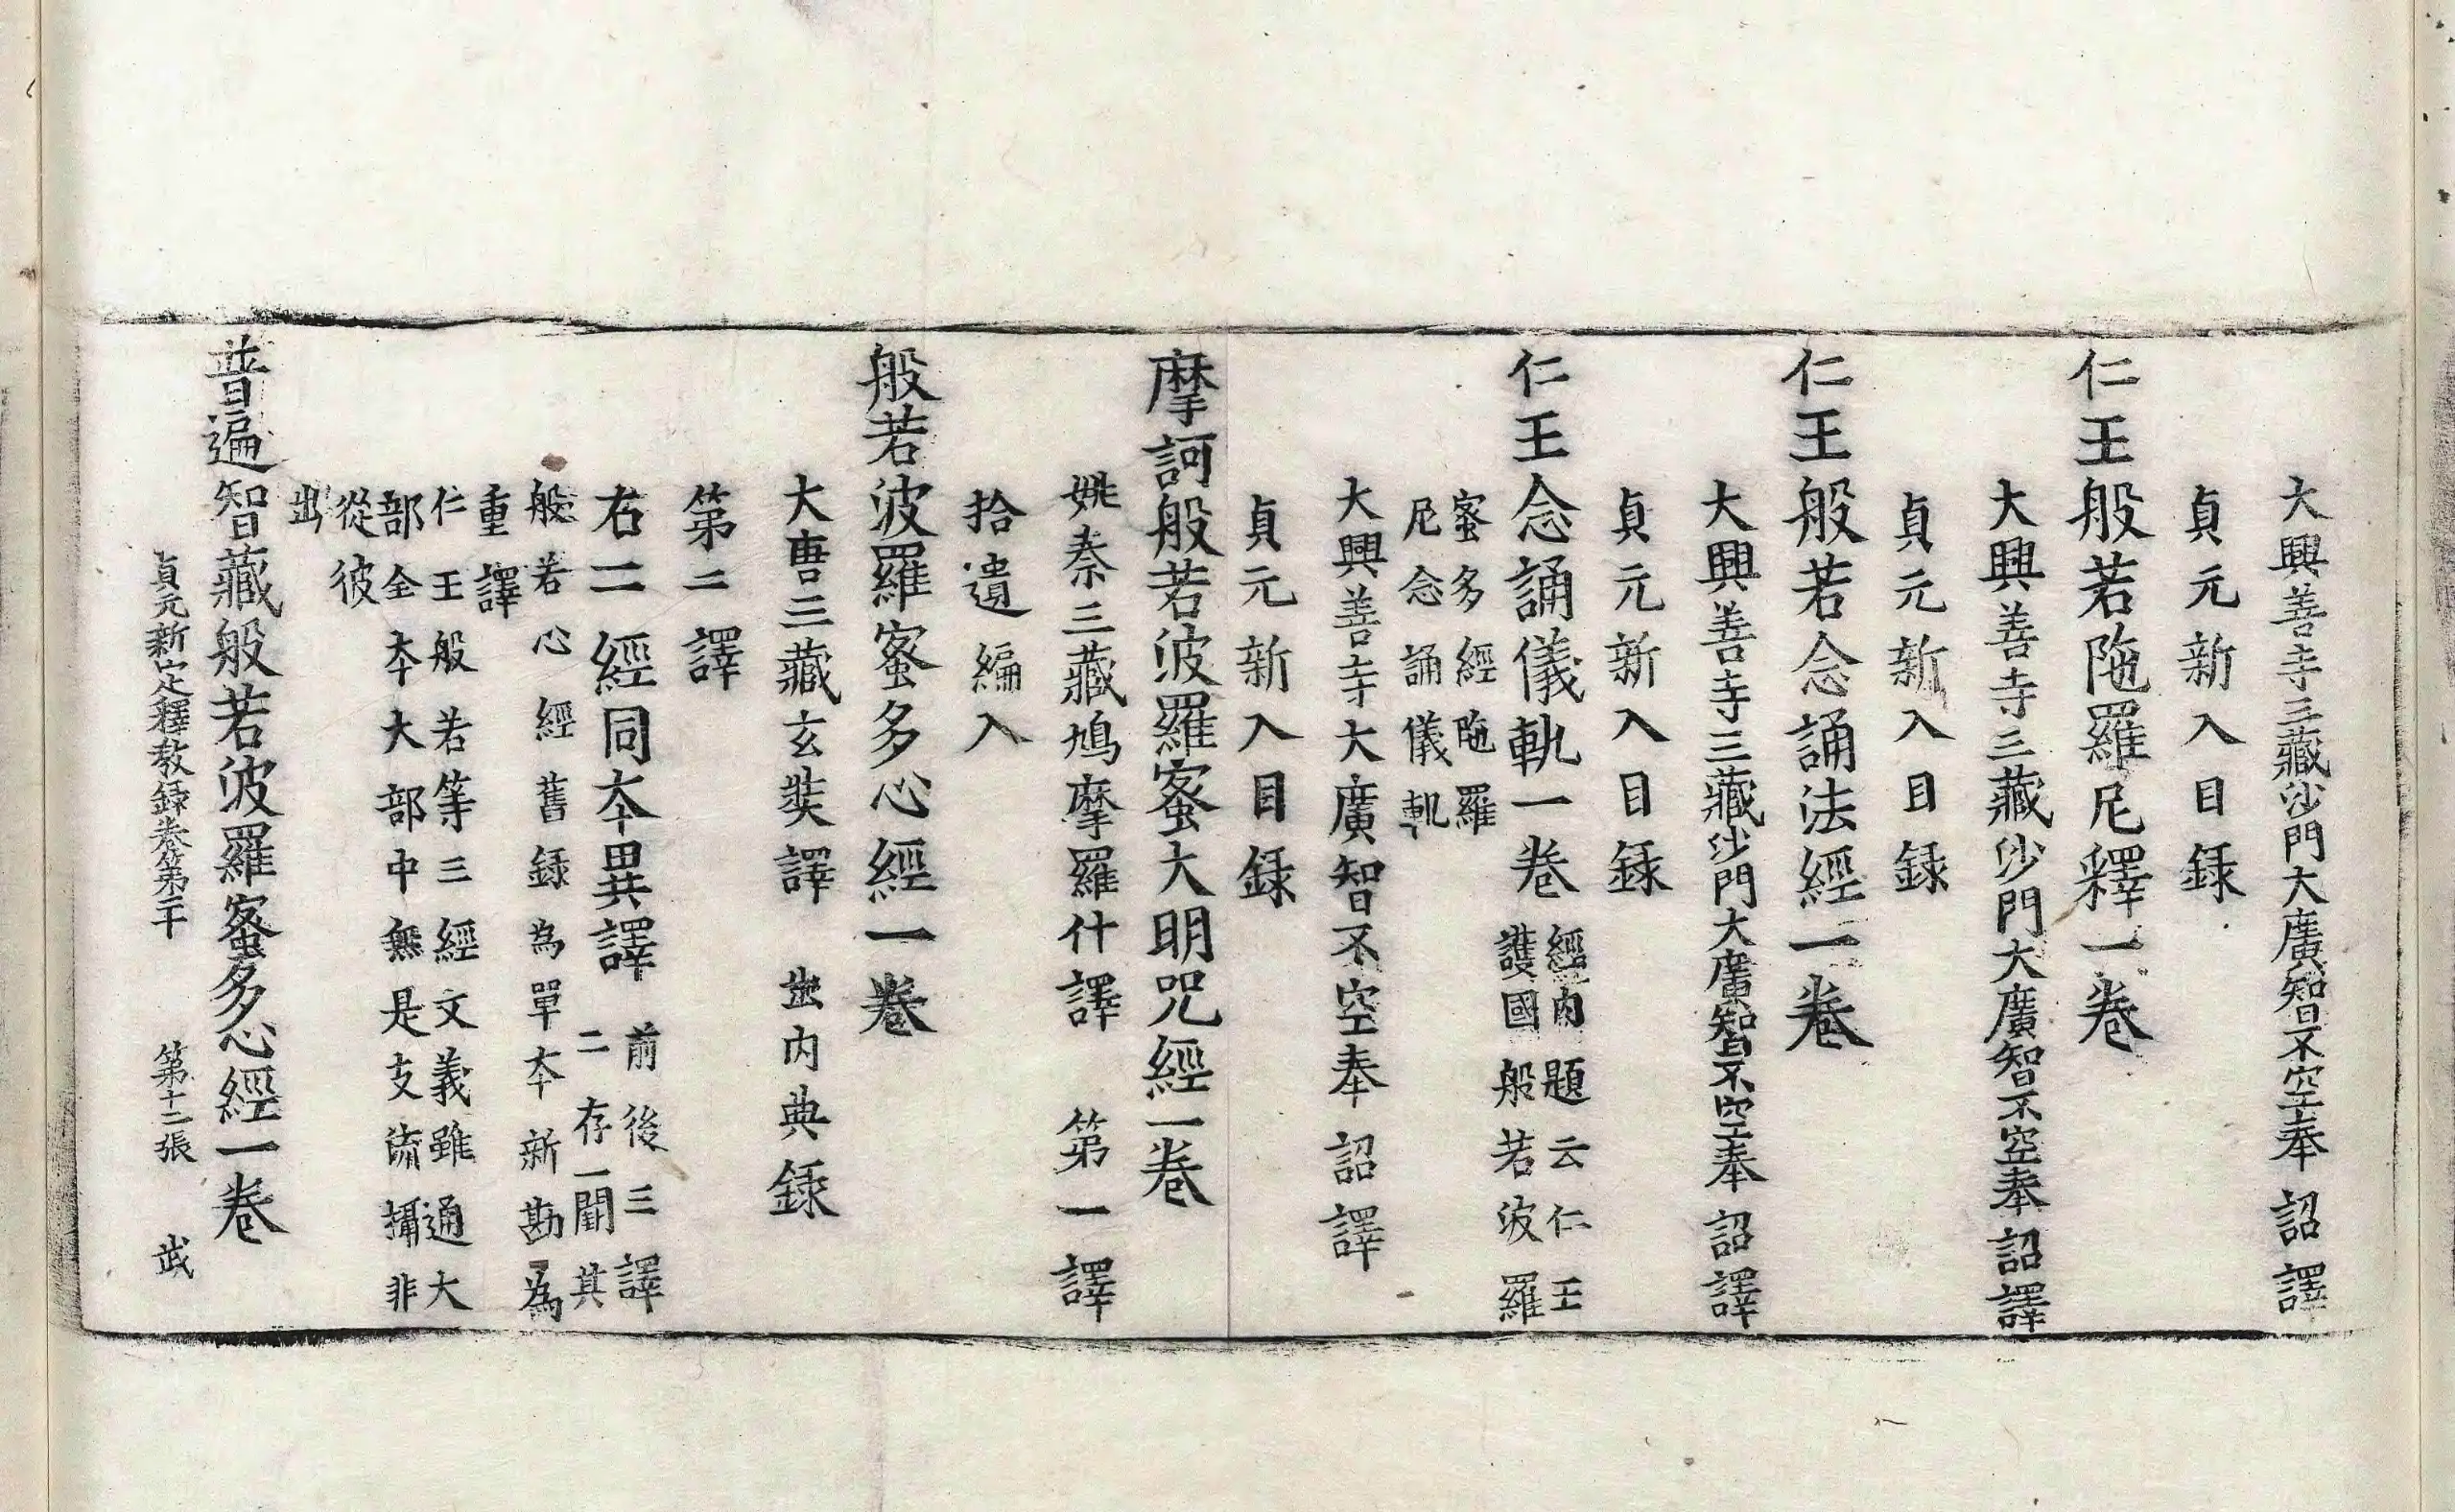 大興善寺三藏沙門大廣智不空奉 詔譯
貞元新入目録
仁王般若陁羅尼釋一卷
大興善寺三藏沙門大廣智不空奉 詔譯
貞元新入目録
仁王般若念誦法經一卷
大興善寺三藏沙門大廣智不空奉 詔譯
貞元新入目録
仁王念誦儀軌一卷 經內題云仁王
護國般若波羅
蜜多經陁羅
尼念誦儀軌
大興善寺大廣智不空奉 詔譯
貞元新入目録
摩訶般若波羅蜜大明呪經一卷
姚秦三藏鳩摩羅什譯 第一譯
拾遺編入
般若波羅蜜多心經一卷
大唐三藏玄奘譯 出内典録
第二譯
右二經同夲異譯 前後三譯
二存一闕其
般若心經舊録為單夲新勘為
重譯
仁王般若等三經文義雖通大
部全夲大部中無是支流攝非
從彼
出
普遍智藏般若波羅蜜多心經一卷
貞元新定釋教録卷第二十 第十二張 武